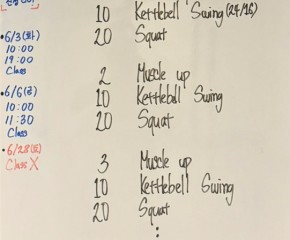 10 Kettlebell Swing (24/16)
20 Squat
• 6/3(화)
10:00
19:00
Class
2 Muscle up
10 Kettlebell Swing
20 Squat
• 6/6(금)
10:00
11:30
Class
3 Muscle up
10 Kettlebell Swing
20 Squat
:
• 6/28(토)
Class X